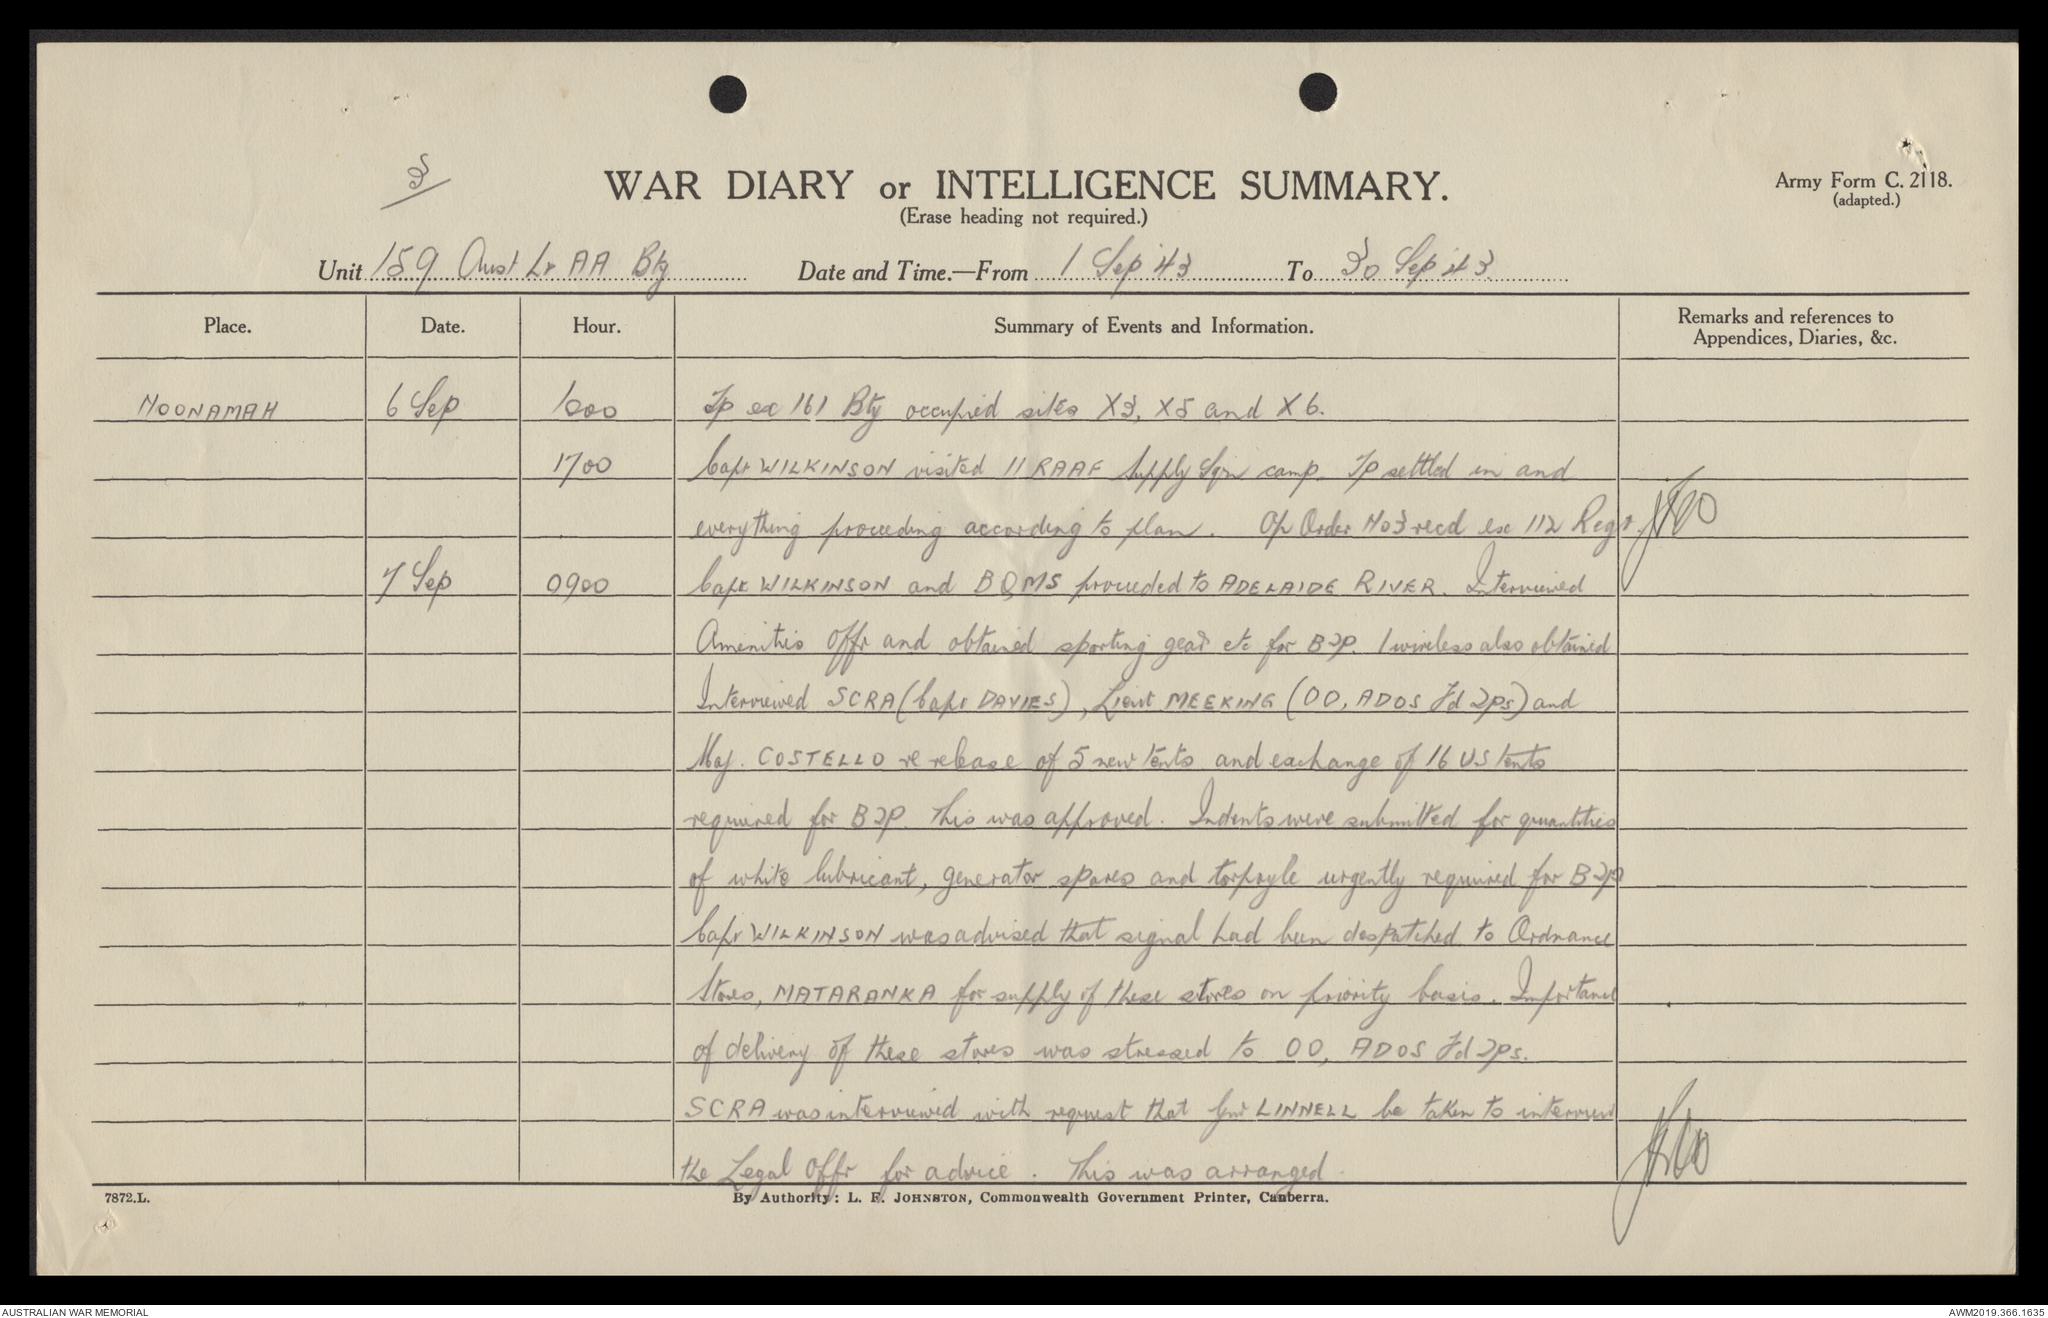 3
WAR DIARY or INTELLIGENCE SUMMARY.
Army Form C. 2118.
(adapted.)
(Erase heading not required.)
Unit 159 Aust Lt AA Bty Date and Time.—From 1 Sep 43 To 30 Sep 43
Place. Date. Hour. Summary of Events and Information. Remarks and references to
Appendices, Diaries, &c.
NOONAMAH 6 Sep 1000 Tp ex 161 Bty occupied sites X3, X5 and X6.
1700 Capt WILKINSON visited 11 RAAF Supply Sqn camp. Tp settled in and
everything proceeding according to plan. Op Order No3 recd ex 112 Regt.
7 Sep 0900 Capt WILKINSON and BQMS proceeded to ADELAIDE RIVER. Interviewed
Amenities Offr and obtained sporting gear etc for BTP. 1 wireless also obtained
Interviewed SCRA (Capt DAVIES), Lieut MEEKING (OO, ADOS Fd Tps) and
Maj. COSTELLO re release of 5 new tents and exchange of 16 US tents
required for BTP. This was approved. Indents were submitted for quantities
of white lubricant, generator spares and torpoyle urgently required for BTP
Capt WILKINSON was advised that signal had been despatched to Ordnance
Stores, MATARANKA for supply of these stores on priority basis. Importance
of delivery of these stores was stressed to OO, ADOS Fd Tps.
SCRA was interviewed with request that Gnr LINNELL be taken to interview
the Legal Offr for advice. This was arranged.
7872.L.
By Authority: L. F. JOHNSTON, Commonwealth Government Printer, Canberra.
AUSTRALIAN WAR MEMORIAL
AWM2019.366.1635